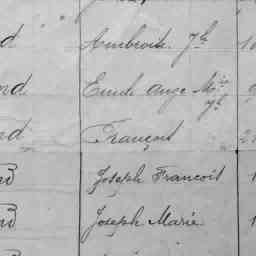 d Ambroise Jh 10
nd Emile Ange Mie
Jh
nd François 2
nd Joseph Francois 1
nd Joseph Marie 1